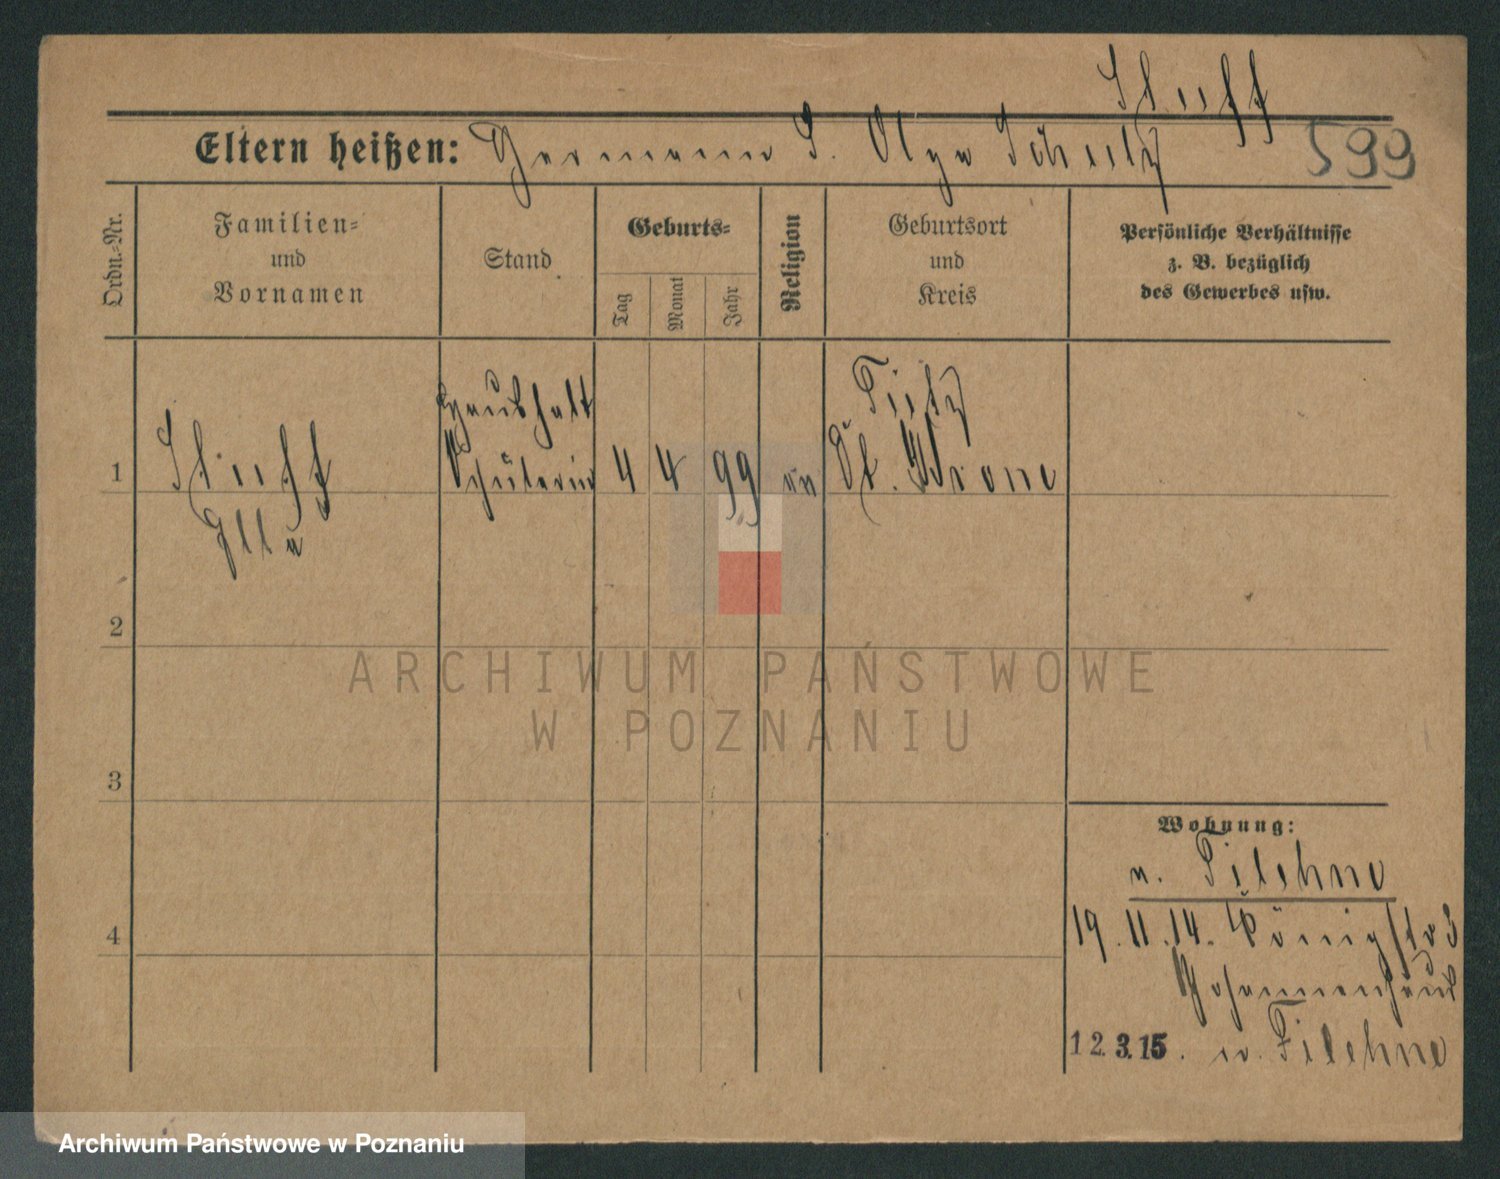 Stueff
Eltern heißen: Hermann S. Olga Schultz
599
Ordn.=Nr.
Familien=
und
Vornamen
Stand
Geburts=
Tag
Monat
Jahr
Religion
Geburtsort
und
Kreis
Persönliche Verhältnisse
z. B. bezüglich
des Gewerbes usw.
Haushalt
Schülerin
1
4 4 99 ev
Tietz
Dt. Krone
2
ARCHIWUM PAŃSTWOWE
W POZNANIU
3
Wohnung:
v. Filehne
4
19. 11. 14. Königstr 3
12. 3. 15. n. Filehne
Archiwum Państwowe w Poznaniu